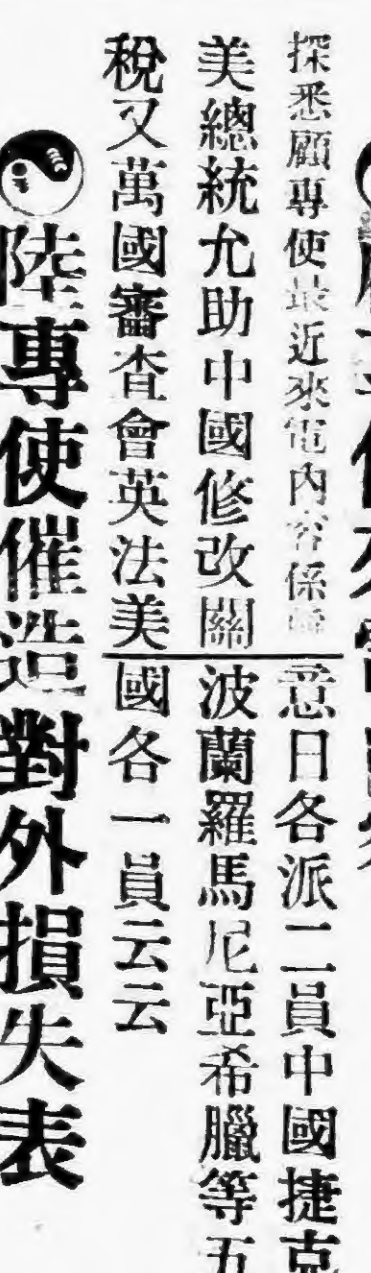 探悉顧專使最近來電內容係
美總統允助中國修改關
稅又萬國審查會英法美
意日各派二員中國捷克
波蘭羅馬尼亞希臘等五
國各一員云云
陸專使催造對外損失表